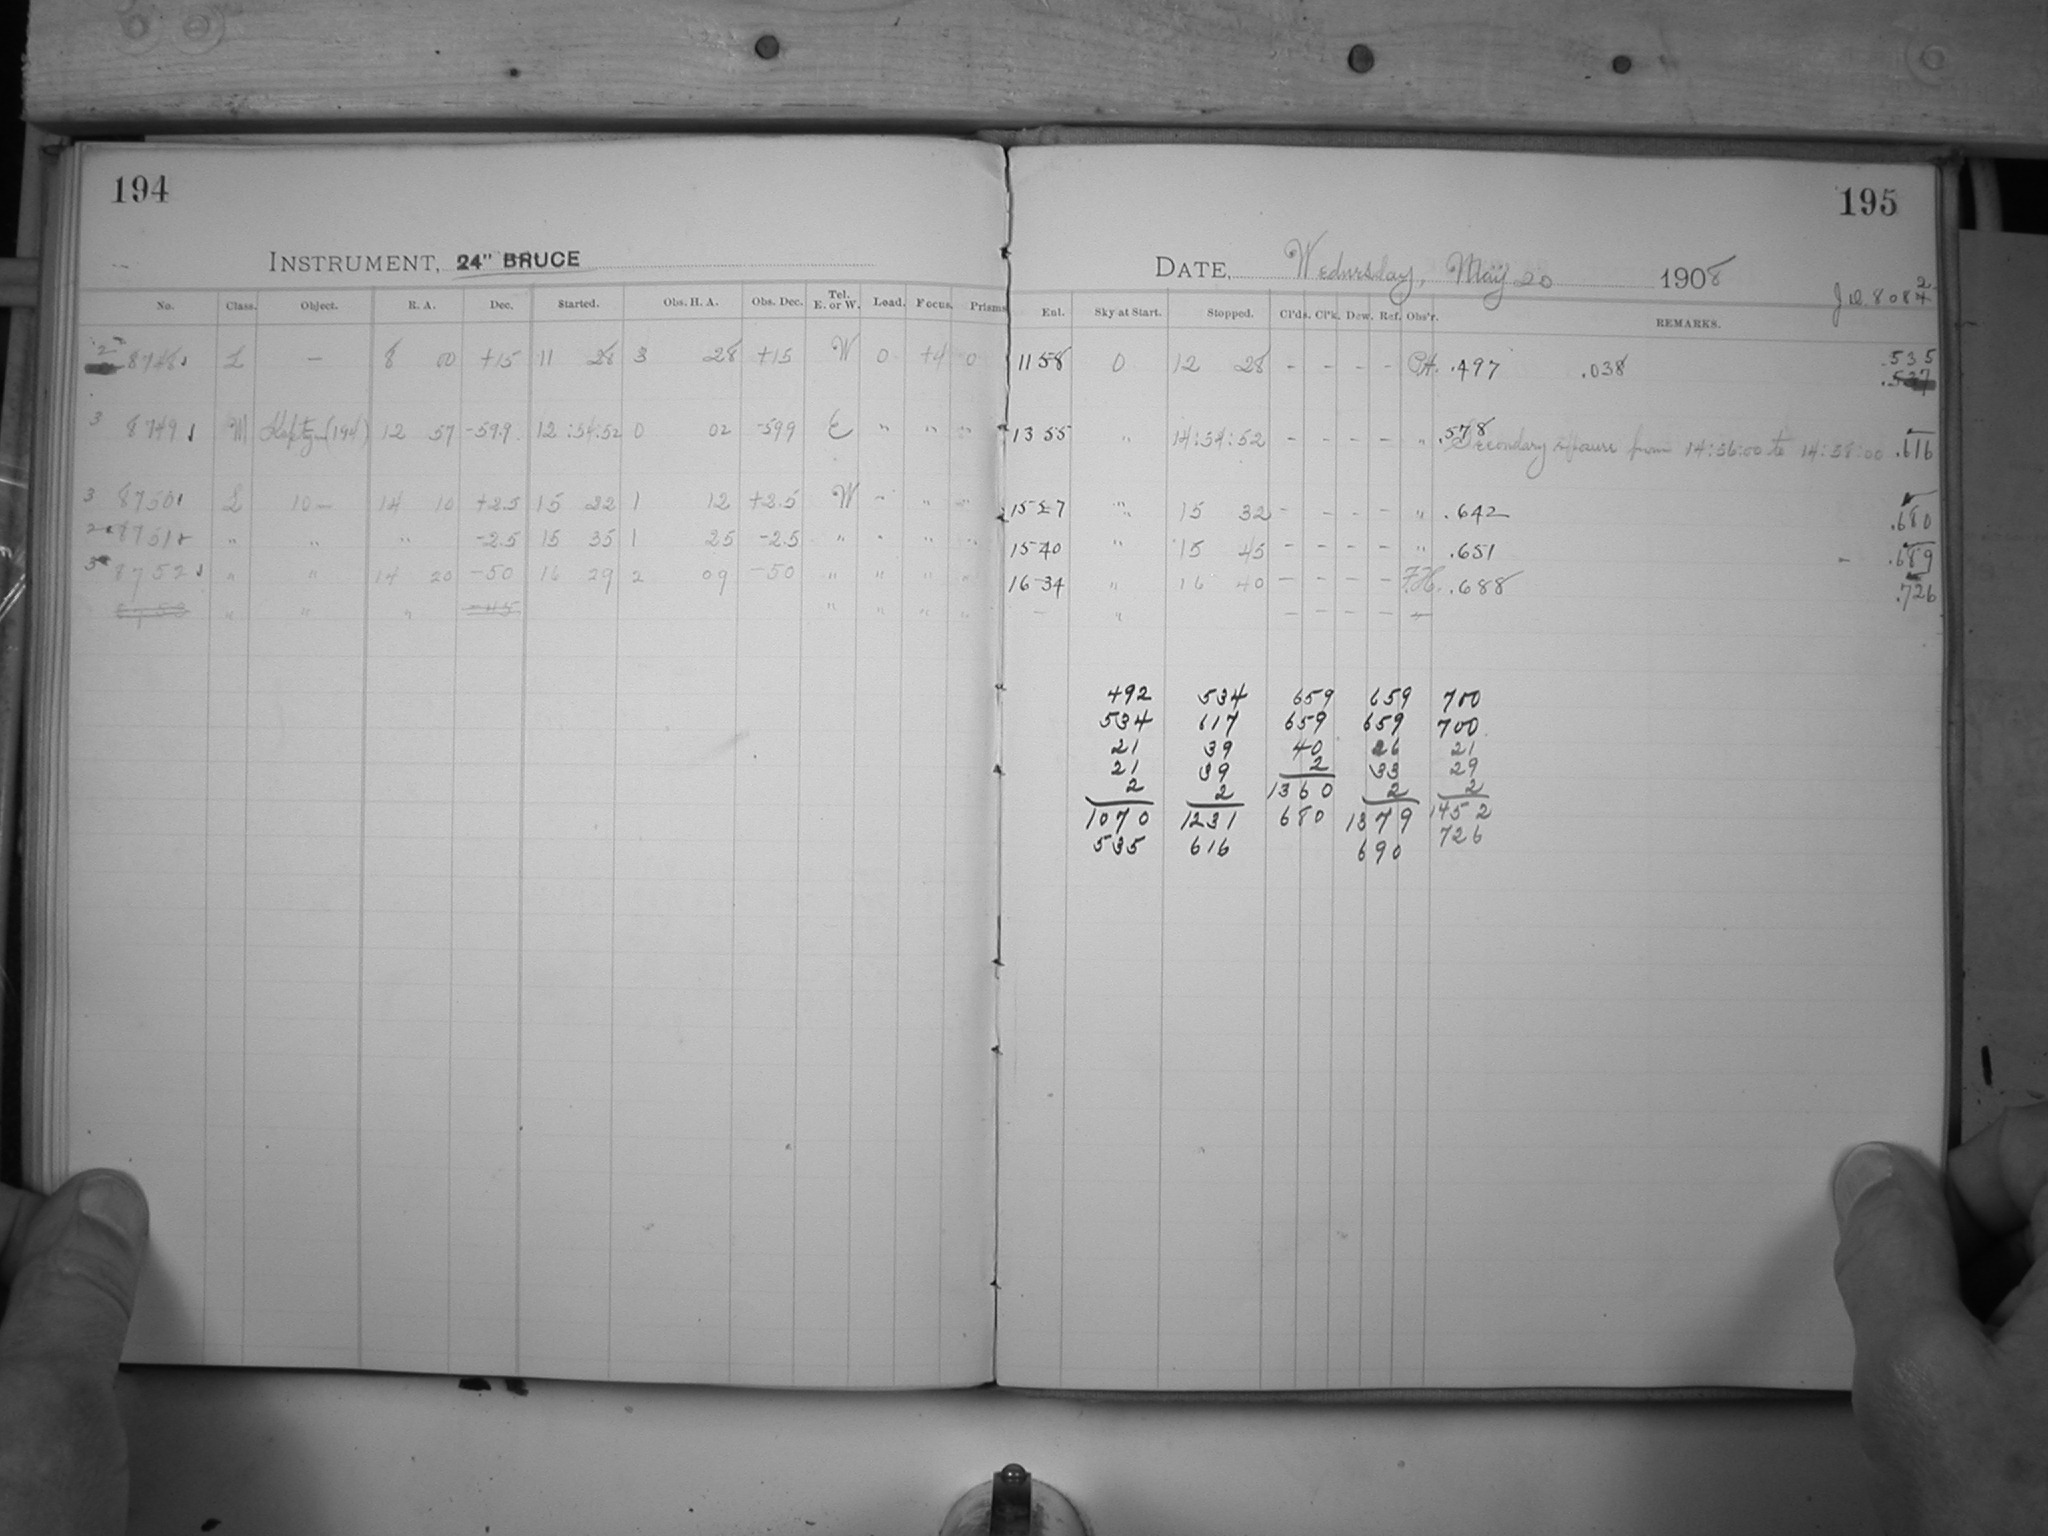 194
INSTRUMENT, 24" BRUCE
No. Class. Object. R. A. Dec. Started. Obs. H. A. Obs. Dec. Tel. E. or W. Load. Focus. Prisms
2 8748 L — 8 00 +15 11 28 3 28 +15 W 0 +4 0
3 8749 M (194) 12 57 -59.9 12:54:52 0 02 -599 E " " "
3 8750 L 10 — 14 10 +2.5 15 22 1 12 +2.5 W - " "
2 8751 " " " -2.5 15 35 1 25 -2.5 " " " "
3 8752 " " 14 20 -50 16 29 2 09 -50 " " " "
8753 " " " -45 " " " "
195
DATE, Wednesday, May 20 1908
J.D. 8082
Enl. Sky at Start. Stopped. Cl'ds. Cl'k. Dew. Ref. Obs'r. REMARKS.
1158 0 12 28 - - - - .497 .038 .535
.537
1355 " 14:54:52 - - - - " .578
Secondary from 14:56:00 to 14:58:00 .616
15 27 " 15 32 - - - - " .642 .680
15 40 " 15 45 - - - - " .651 - .689
16-34 " 16 40 - - - - F.H. .688 .726
— " - - - -
492 534 659 659 700
534 617 659 659 700
21 39 40 26 21
21 39 2 33 29
2 2 1360 2 2
1070 1231 680 1379 1452
535 616 690 726